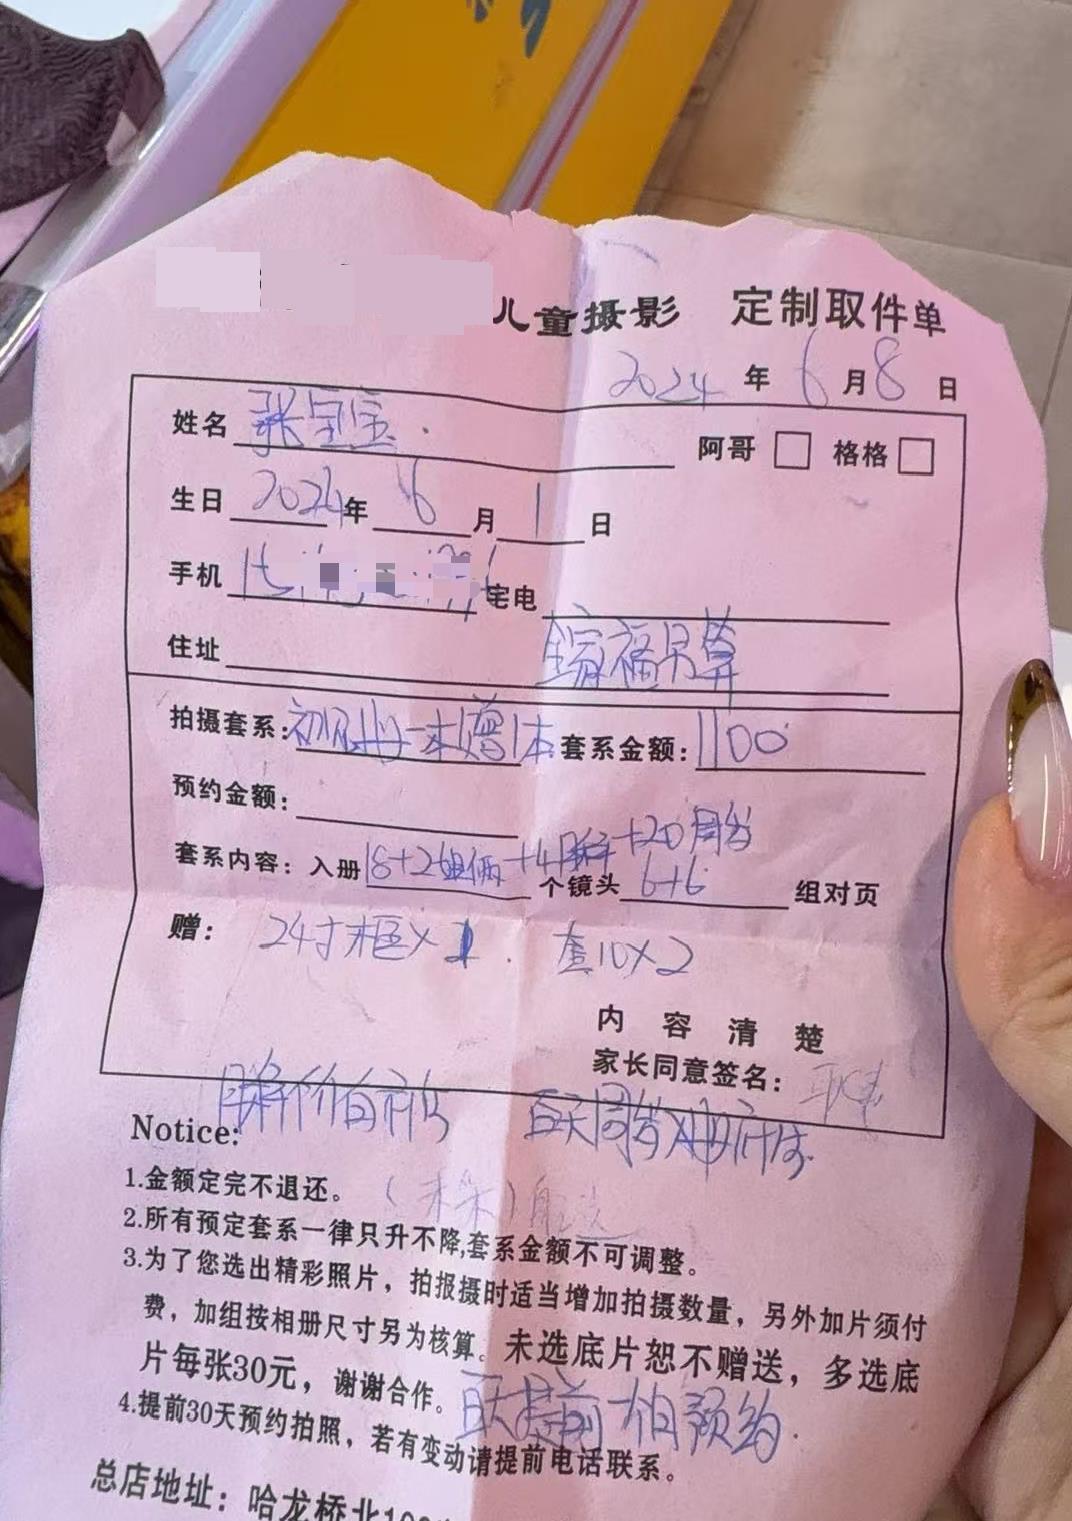 儿童摄影 定制取件单
2024年6月8日
姓名 张宝宝 阿哥 格格
生日 2024年6月1日
手机 宅电
住址
拍摄套系: 增1本 套系金额: 1100
预约金额:
套系内容: 入册 18+2姐俩+4 +20周岁 个镜头 6+6 组对页
赠: 24寸框x1. 套10x2
内容清楚
家长同意签名:
百天周岁
Notice:
1.金额定完不退还。
2.所有预定套系一律只升不降,套系金额不可调整。
3.为了您选出精彩照片，拍报摄时适当增加拍摄数量，另外加片须付
费，加组按相册尺寸另为核算。未选底片恕不赠送，多选底
片每张30元，谢谢合作。
百天提前 拍预约.
4.提前30天预约拍照，若有变动请提前电话联系。
总店地址：哈龙桥北